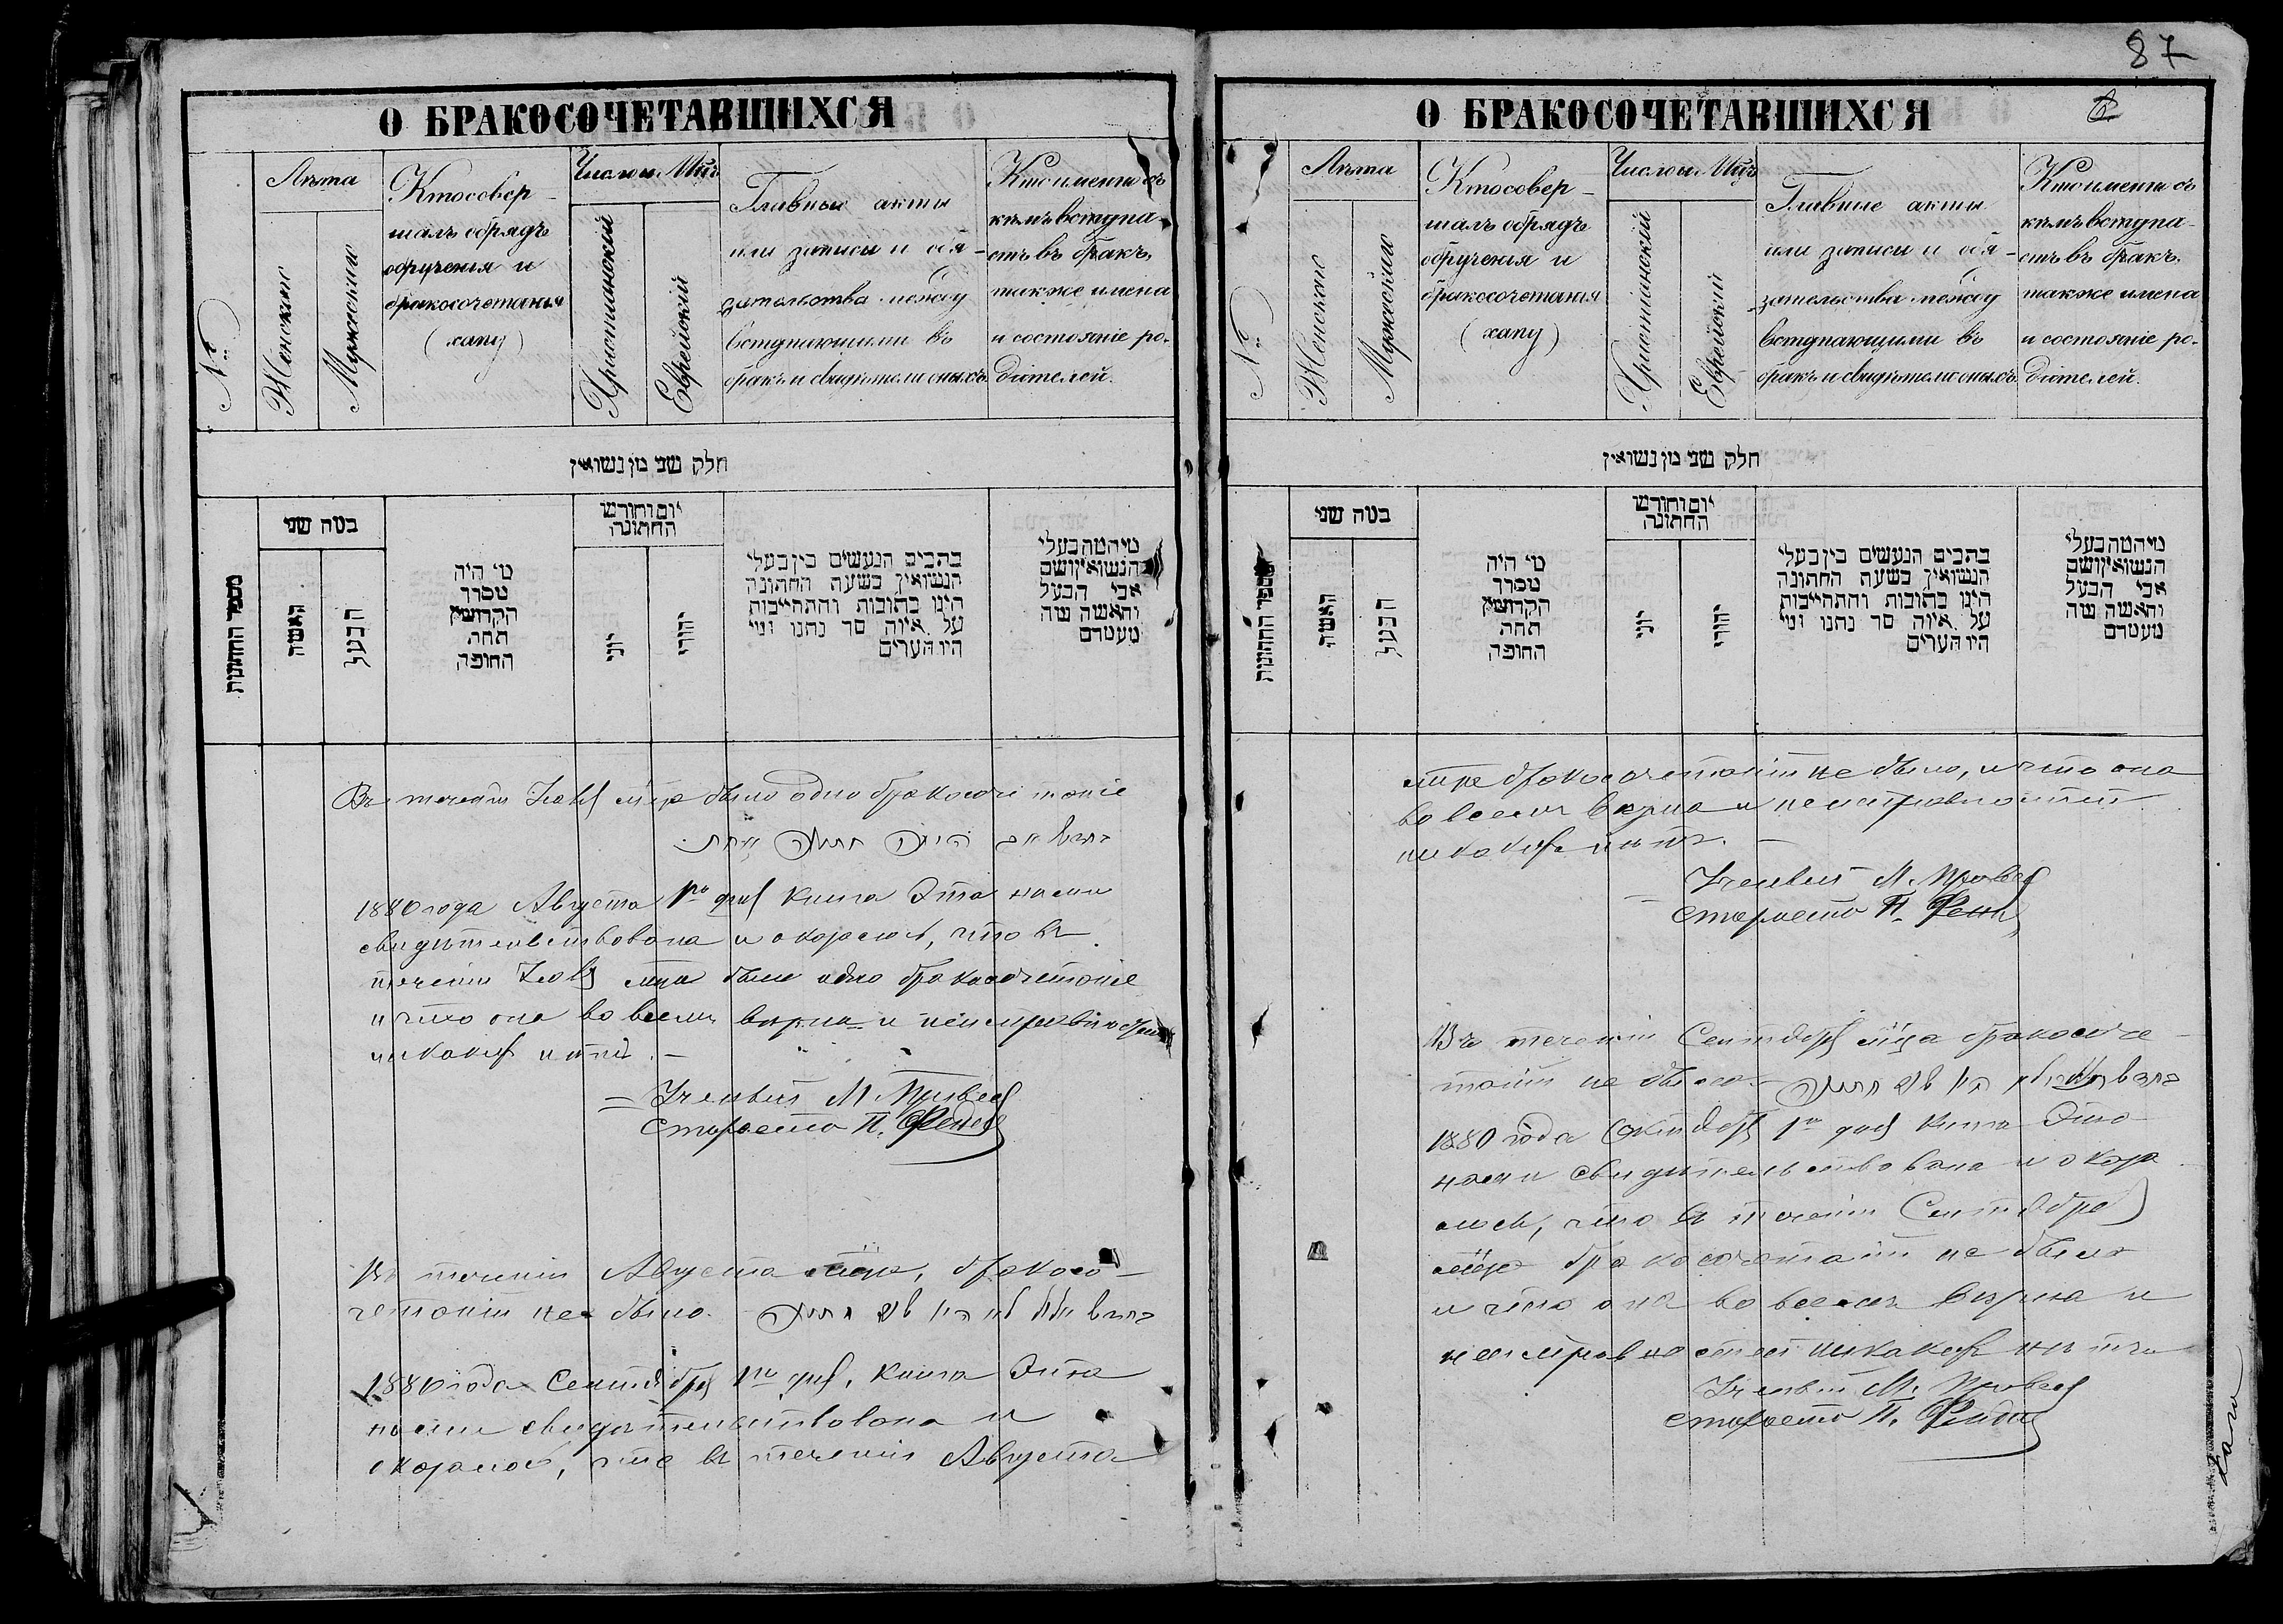 О БРАКОСОЧЕТАВШИХСЯ
№
Лѣта
Женскiе
Мужескiе
Кто совер-
шалъ обрядъ
обрученiя и
бракосочетанiя
(хапу)
Число и Мцъ
Христiанскiй
Еврейскiй
Главные акты
или записи и обя-
зательства между
вступающими въ
бракъ и свидѣтели оныхъ.
Кто именно съ
кѣмъ вступа-
етъ въ бракъ,
также имена
и состоянiе ро-
дителей.
חלק שני מן נשואין
מספר החתונות
כמה שני
האשה
הבעל
מי היה
מסדר
הקדושין
תחת
החופה
יום וחודש
החתונה
יוני
יהודי
כתבים הנעשים בין בעלי
הנשואין בשעת החתונה
היינו כתובות והתחייבות
על איזה סך נתנו ומי
היו העדים
מי המה בעלי
הנשואין ושם
אבי הבעל
והאשה שה
מעמדם
Въ теченiи Iюля мѣца было одно бракосочетанiе
היה חתונה אחת
1880 года Августа 1го дня книга Эта нами
свидѣтельствована и оказалось, что въ
теченiи Iюля мца было одно бракосочетанiе
и что она во всемъ вѣрна и неисправностей
никакихъ нѣтъ. —
Ученый М.
Староста П.
Въ теченiи Августа мѣца, бракосо-
четанiй не было. לא היו שום חתונה
1880 года Сентября 1го дня, книга Эта
нами свидѣтельствована и
оказалось, что въ теченiи Августа
87
О БРАКОСОЧЕТАВШИХСЯ
№
Лѣта
Женскiе
Мужескiе
Кто совер-
шалъ обрядъ
обрученiя и
бракосочетанiя
(хапу)
Число и Мцъ
Христiанскiй
Еврейскiй
Главные акты
или записи и обя-
зательства между
вступающими въ
бракъ и свидѣтели оныхъ.
Кто именно съ
кѣмъ вступа-
етъ въ бракъ,
также имена
и состоянiе ро-
дителей.
חלק שני מן נשואין
מספר החתונות
כמה שני
האשה
הבעל
מי היה
מסדר
הקדושין
תחת
החופה
יום וחודש
החתונה
יוני
יהודי
כתבים הנעשים בין בעלי
הנשואין בשעת החתונה
היינו כתובות והתחייבות
על איזה סך נתנו ומי
היו העדים
מי המה בעלי
הנשואין ושם
אבי הבעל
והאשה שה
מעמדם
мѣца бракосочетанiй не было, и что она
во всемъ вѣрна и неисправностей
никакихъ нѣтъ. —
Ученый М.
Староста П.
Въ теченiи Сентября мѣца бракосоче-
танiй не было היו שום חתונה
1880 года Октября 1го дня книга Эта
нами свидѣтельствована и оказа-
лось, что въ теченiи Сентября
мѣца бракосочетанiй не было
и что она во всемъ вѣрна и
неисправностей никакихъ нѣтъ
Ученый М.
Староста П.